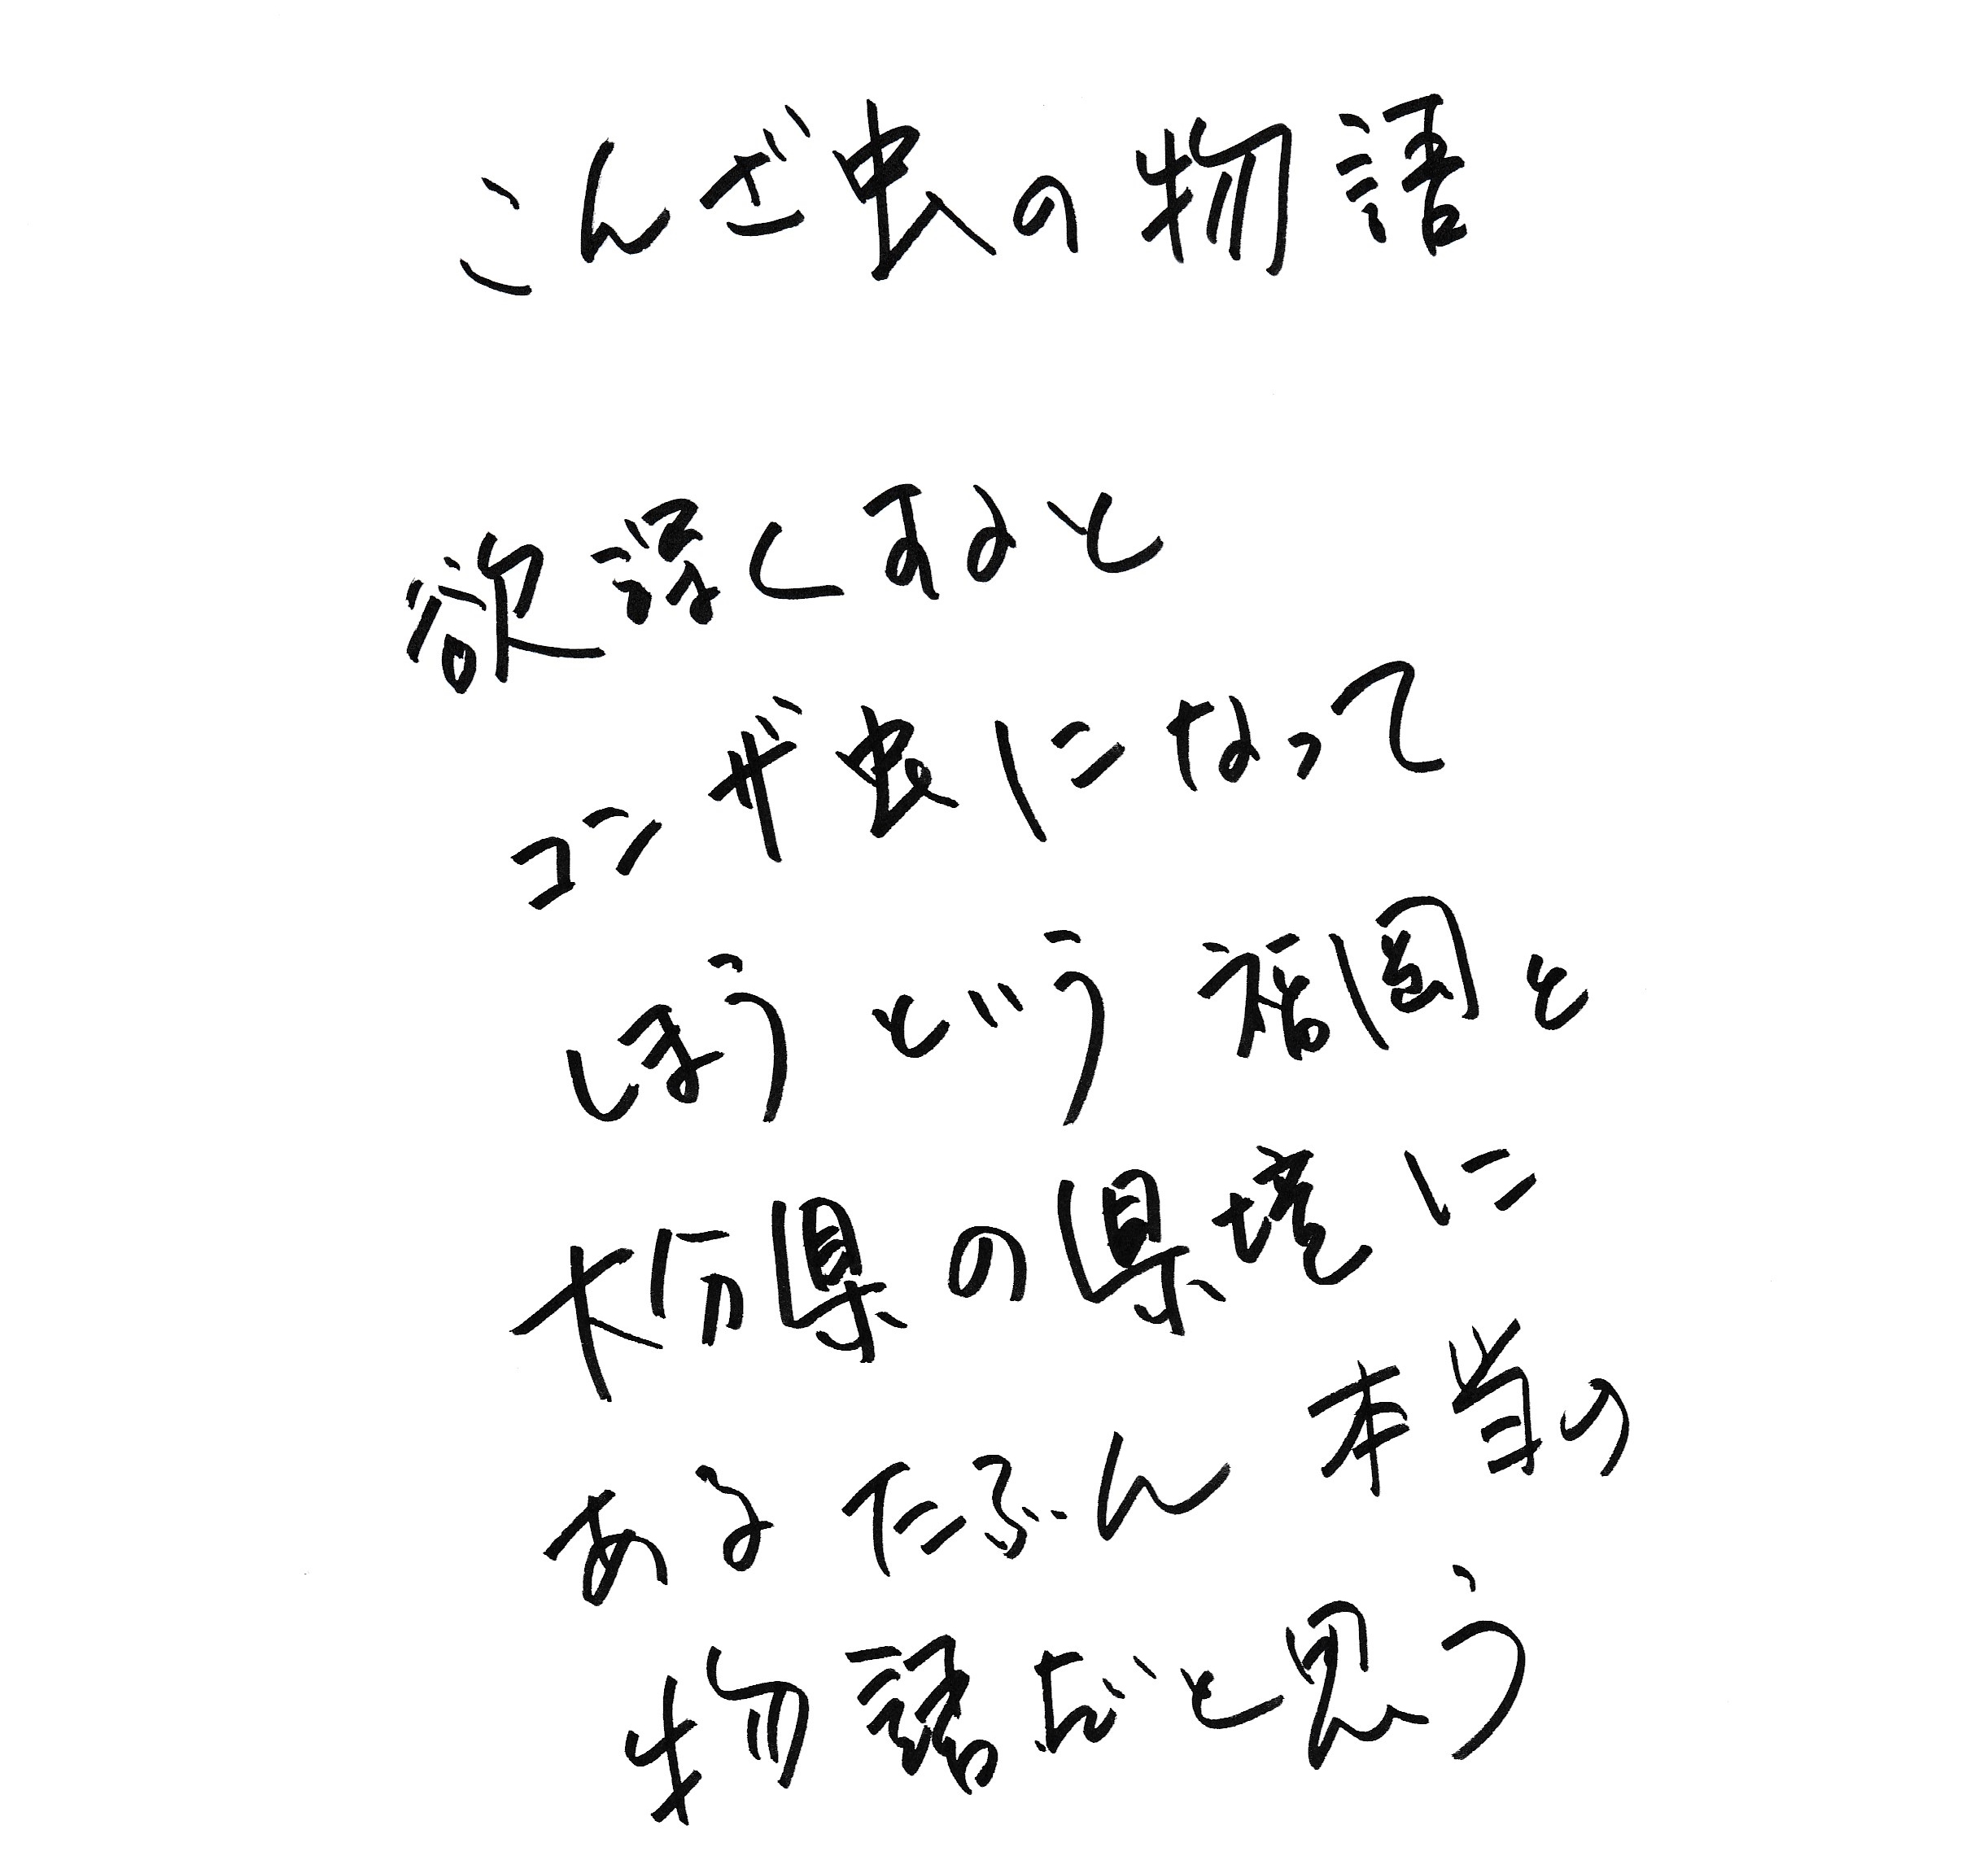 こんざ虫の物語
欲深くすると
コンザ虫になって
しまうという福岡と
大分県の県境に
あるたぶん本当の
物語だと思う